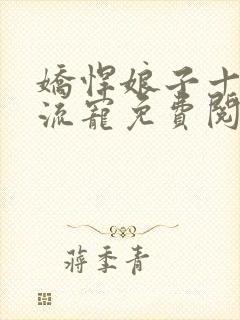 嬌悍娘子十
流寵免費閱
蔣季青